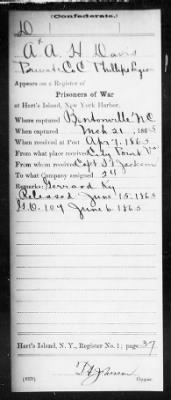 (Confederate.)
D
A* A. H. Davis
Private Co C Phillips Legion
Appears on a Register of
Prisoners of War
at Hart's Island, New York Harbor.
Where captured Bentonville NC
When captured Mch 21, 1865
When received at Post Apr 7, 1865
From what place received City Point Va
From whom received Capt
To what Company assigned 24
Remarks: Gerrard Ky
Released June 15, 1865
G.O. 109 June 6 1865
Hart's Island, N. Y., Register No. 1; page 37
Copyist.